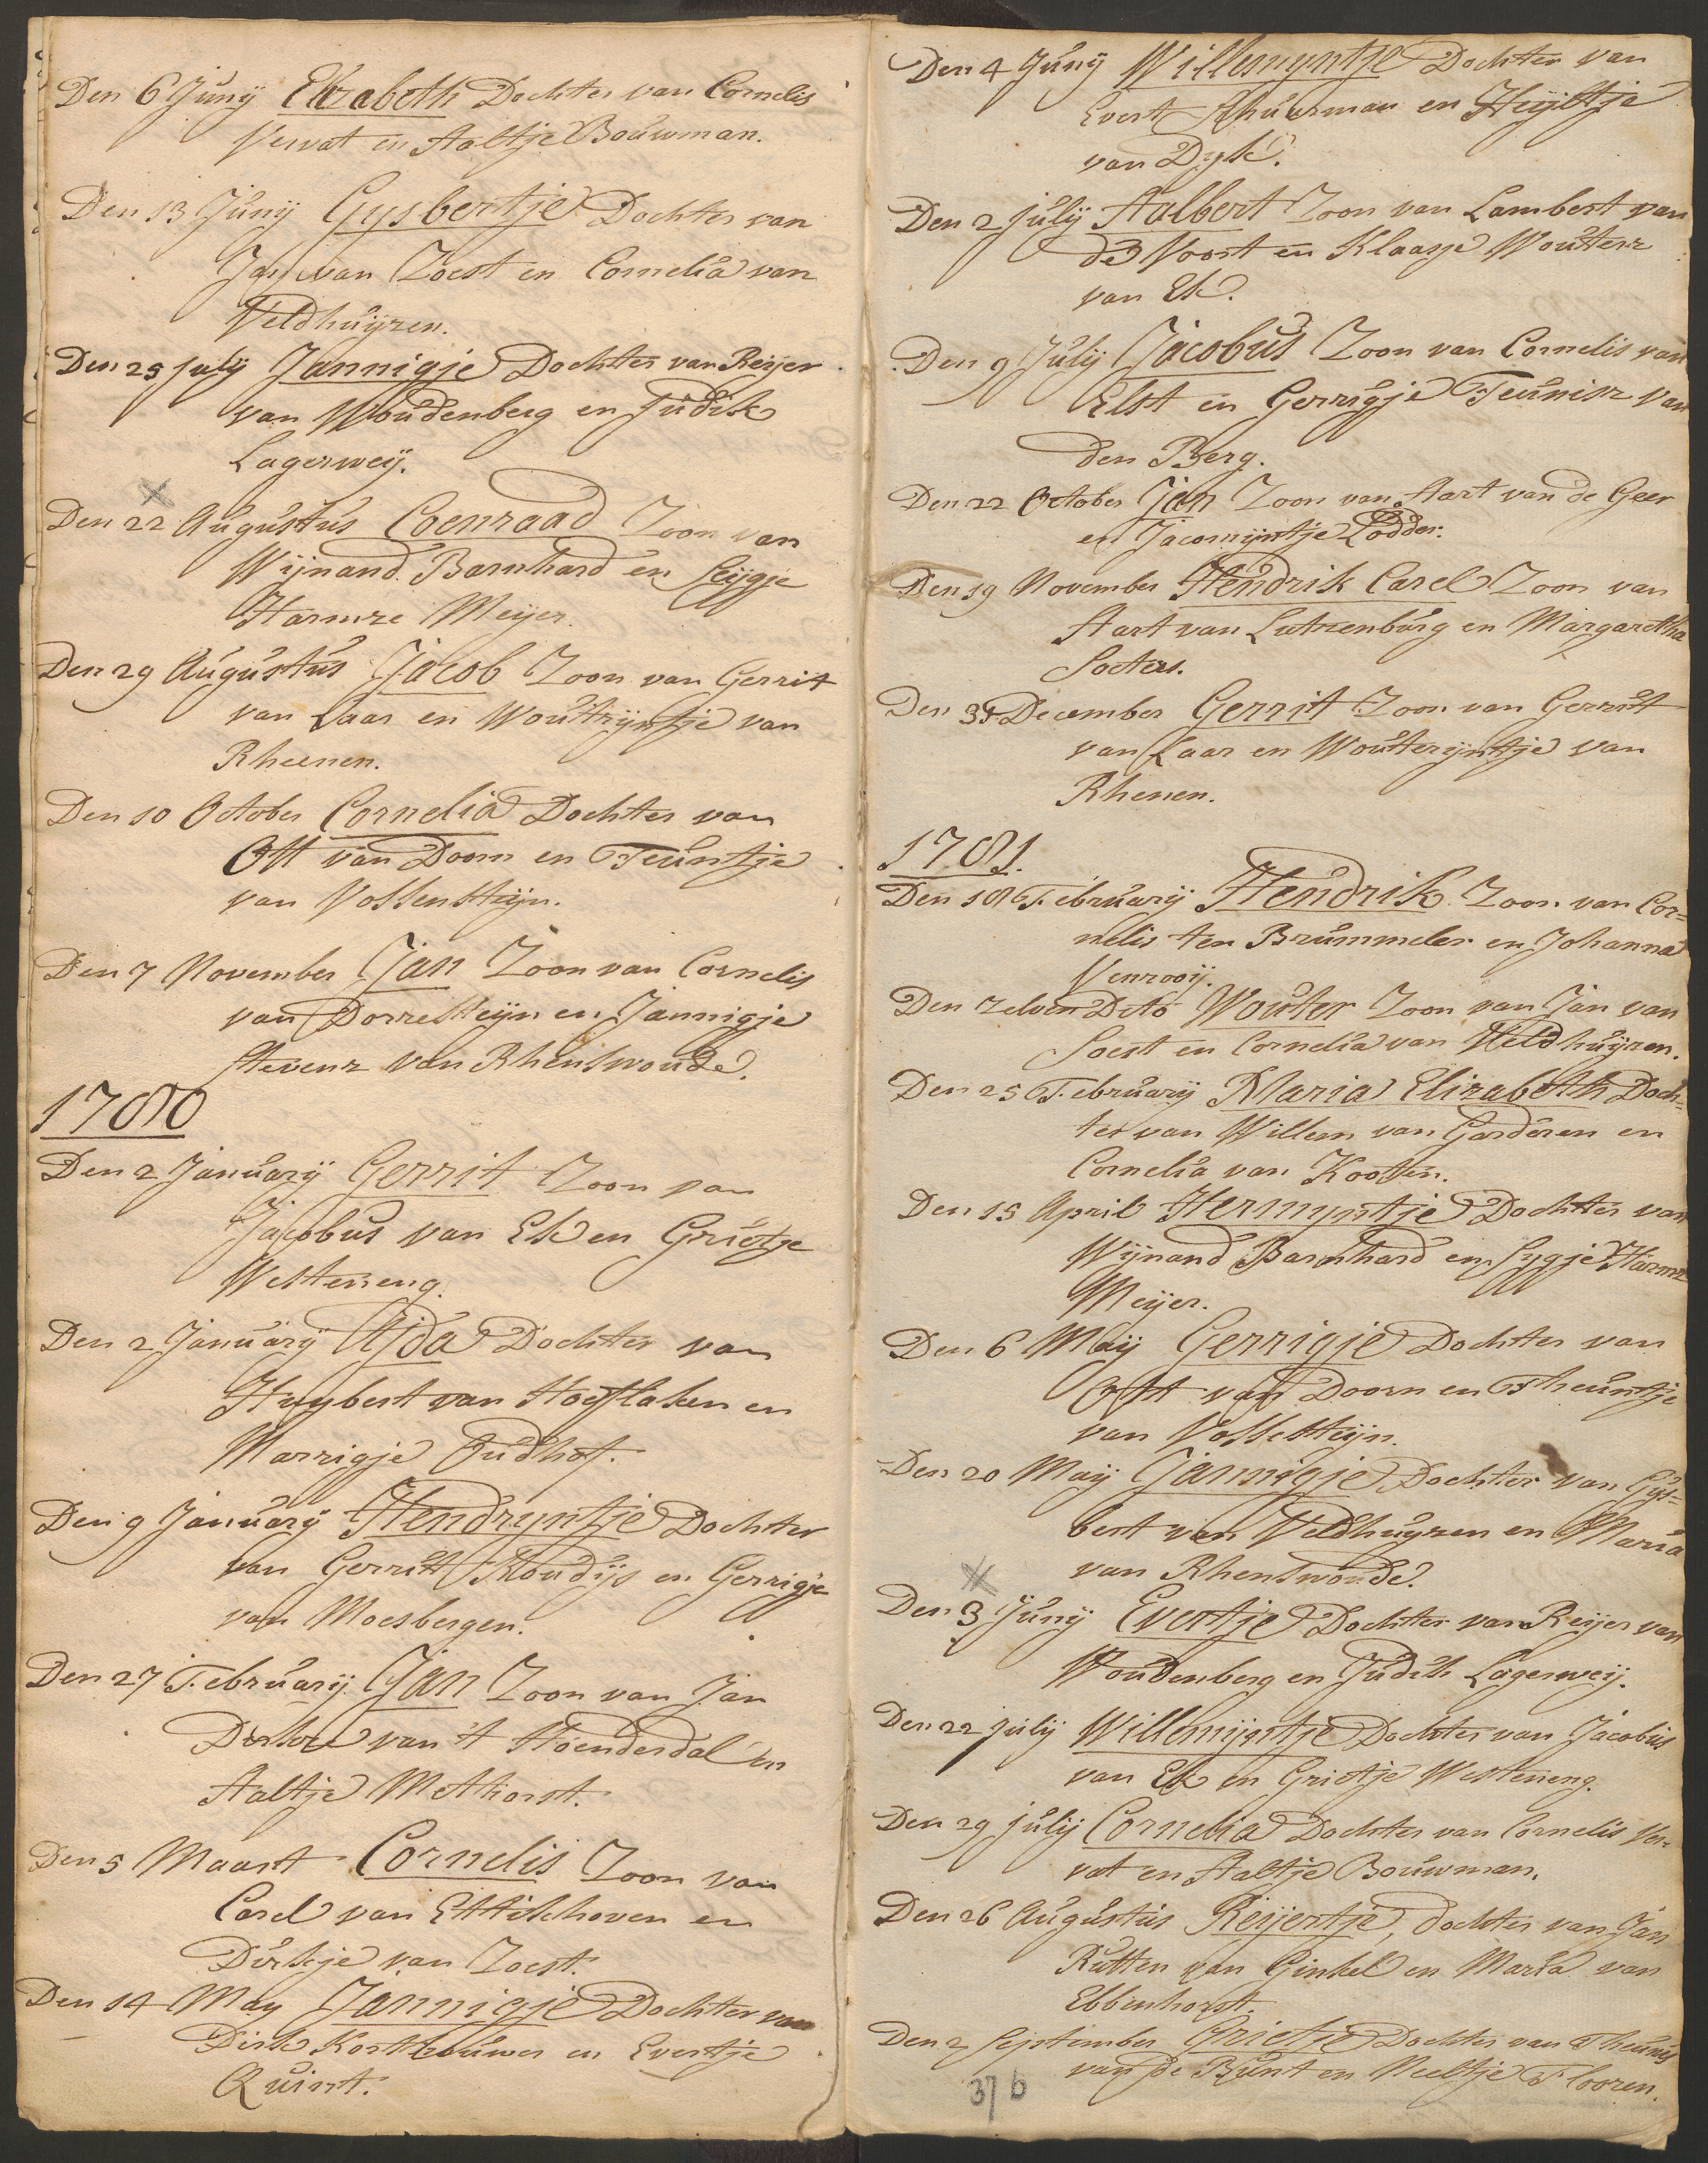 Den 6 Junij Elizabeth Dochter van Cornelis
Vervat en Aaltje Bouwman.
Den 13 Junij Gysbertje Dochter van
Jan van Zoest en Cornelia van
Veldhuijzen.
Den 25 july Jannigje Dochter van Reijer
van Woudenberg en Judik
Lagerweij.
Den 22 Augustus Coenraad Zoon van
Wijnand Barnhard en Sijgje
Harmze Meijer.
Den 29 Augustus Jacob Zoon van Gerrit
van Laar en Woutrijntje van
Rheenen.
Den 10 October Cornelia Dochter van
Ott van Doorn en Teuntje
van Vossensteijn.
Den 7 November Jan Zoon van Cornelis
van Dorresteijn en Jannigje
Stevenz van Rhenswoude.
1780
Den 2 Januarij Gerrit Zoon van
Jacobus van Ek en Grietje
Westeneng.
Den 2 Januarij Ajda Dochter van
Huybert van Hoeflaken en
Marrigje Oudhof.
Den 9 Januarij Hendryntje Dochter
van Gerritt Floudijs en Gerrigje
van Moesbergen.
Den 27 February Jan Zoon van Jan
Dirkze van 't Hoenderdal en
Aaltje Methorst.
Den 5 Maart Cornelis Zoon van
Carel van Ettikhoven en
Dirkje van Zoest.
Den 14 May Jannigje Dochter van
Dirk Kortbouwer en Evertje
Quint.
Den 4 Junij Willemyntje Dochter van
Evert Schuurman en Heijltje
van Dyk.
Den 2 july Aalbert Zoon van Lambert van
de Voort en Klaasje Wouterz
van Ek.
Den 9 July Jacobus Zoon van Cornelis van
Elst en Gerrigje Teunisz van
den Berg.
Den 22 October Jan Zoon van Aart van de Geer
en Jacomijntje Lodder.
Den 19 November Hendrik Carel Zoon van
Aart van Lutzenburg en Margaretha
Soeters.
Den 31 December Gerrit Zoon van Gerrit
van Laar en Wouterijntje van
Rhenen.
1781.
Den 18 February Hendrik Zoon van Cor=
nelis ten Brummeler en Johanna
Venrooij.
Den zelven Dito Wouter Zoon van Jan van
Soest en Cornelia van Veldhuijzen.
Den 25 February Maria Elizabeth Doch=
ter van Willem van Garderen en
Cornelia van Kooten.
Den 15 April Hermyntje Dochter van
Wijnand Barnhard en Sygje Harmz
Meijer.
Den 6 Maij Gerrigje Dochter van
Ott van Doorn en Theuntje
van Vossesteijn.
Den 20 Maij Jannigje Dochter van Gijs=
bert van Veldhuyzen en Maria
van Rhenswoude.
Den 3 Junij Evertje Dochter van Reijer van
Woudenberg en Judik Lagerweij.
Den 22 julij Willemijntje Dochter van Jacobus
van Ek en Grietje Westeneng.
Den 29 julij Cornelia Dochter van Cornelis Ver=
vat en Aaltje Bouwman.
Den 26 Augustus Reijertje, dochter van Jan
Rutten van Ginkel en Maria van
Ebbenhorst.
Den 2 September Grietje Dochter van Theunis
van de Bunt en Neeltje Flooren.
37 b